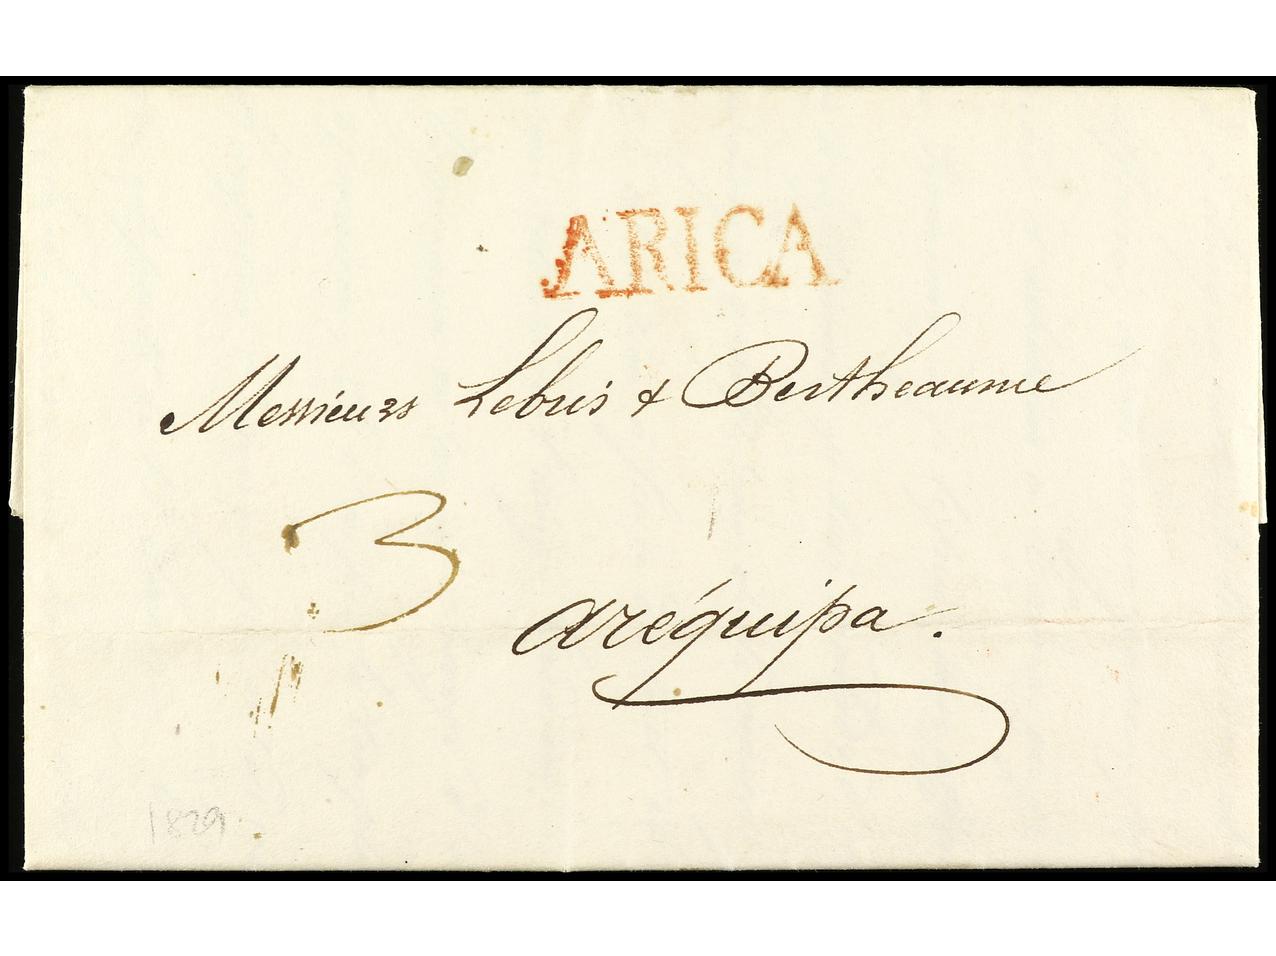 ARICA
Messieurs Lebris & Bertheaume
3
aréquipa.
1829